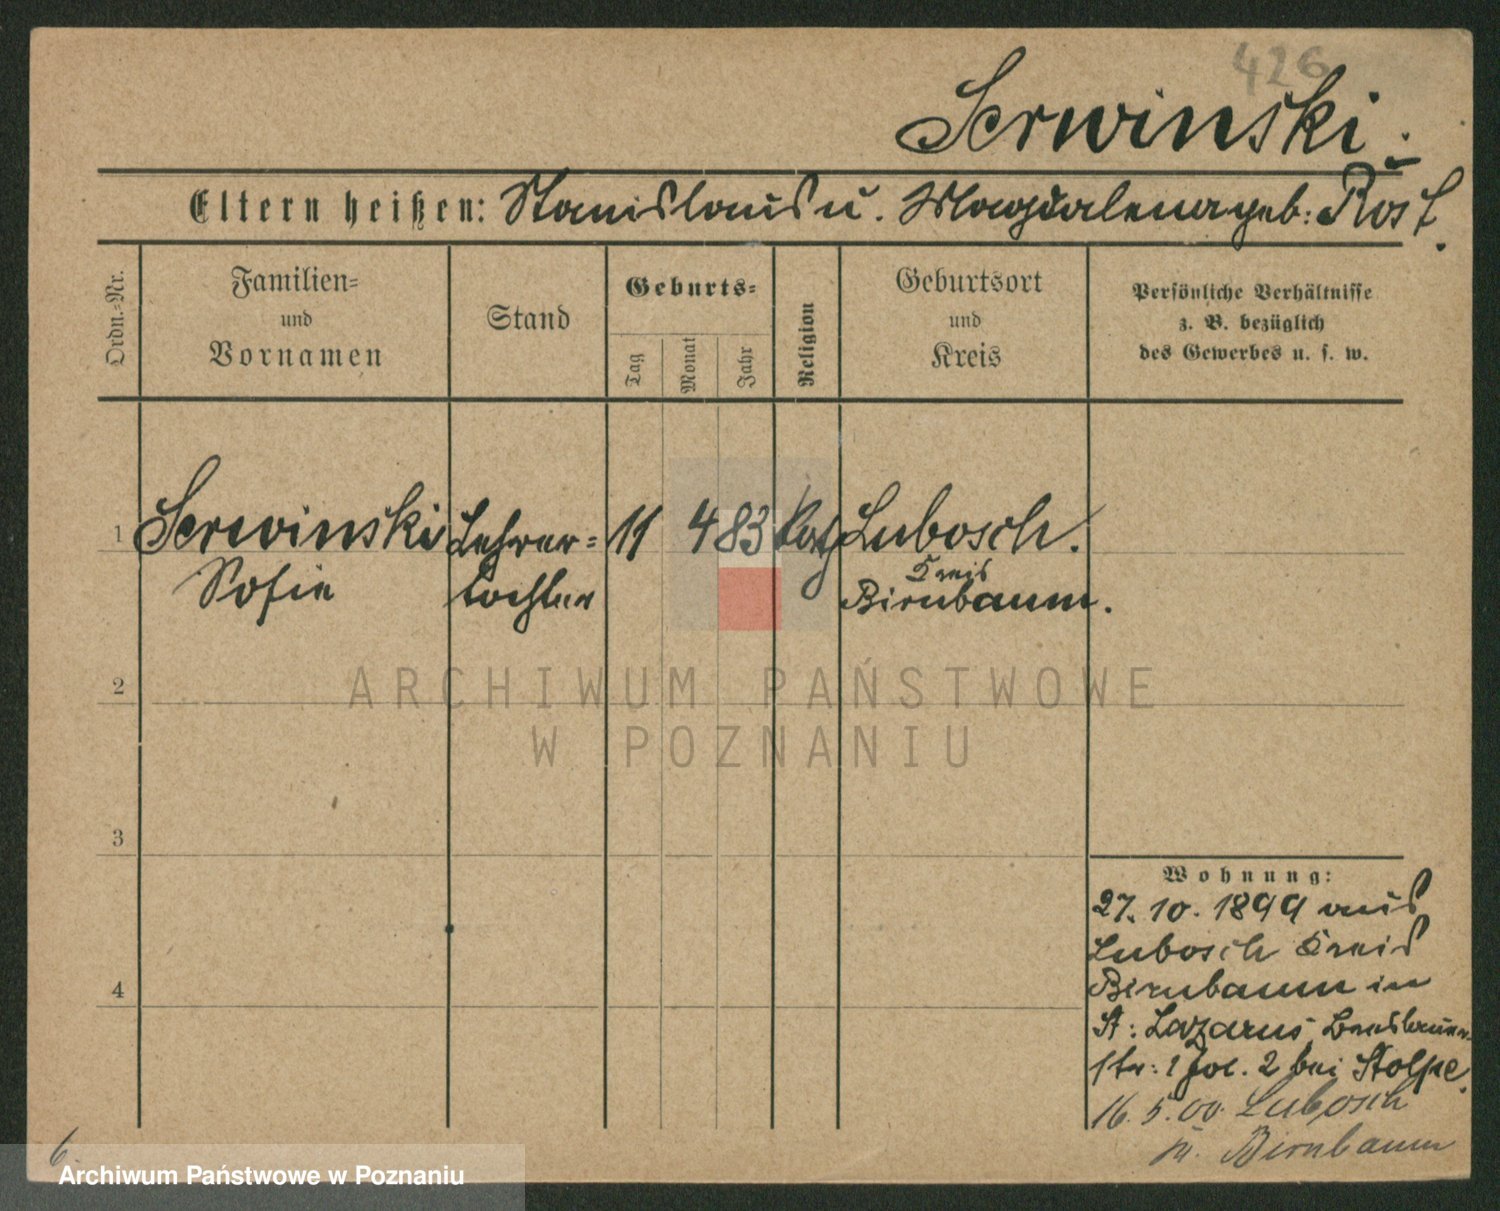 426
Serwinski.
Eltern heißen: Stanislaus u. Magdalena geb: Rost.
Ordn.-Nr.
Familien=
und
Vornamen
Stand
Geburts=
Tag
Monat
Jahr
Religion
Geburtsort
und
Kreis
Persönliche Verhältnisse
z. B. bezüglich
des Gewerbes u. s. w.
1 Serwinski Lehrer= 11 4 83 Kath Lubosch.
Sofie tochter Kreis
Birnbaum.
2
ARCHIWUM PAŃSTWOWE
W POZNANIU
3
Wohnung:
27. 10. 1899 aus
Lubosch Kreis
4
Birnbaum in
St: Lazarus
str: 1 2 bei Stolpe.
16. 5. 00. Lubosch
Birnbaum
6.
Archiwum Państwowe w Poznaniu